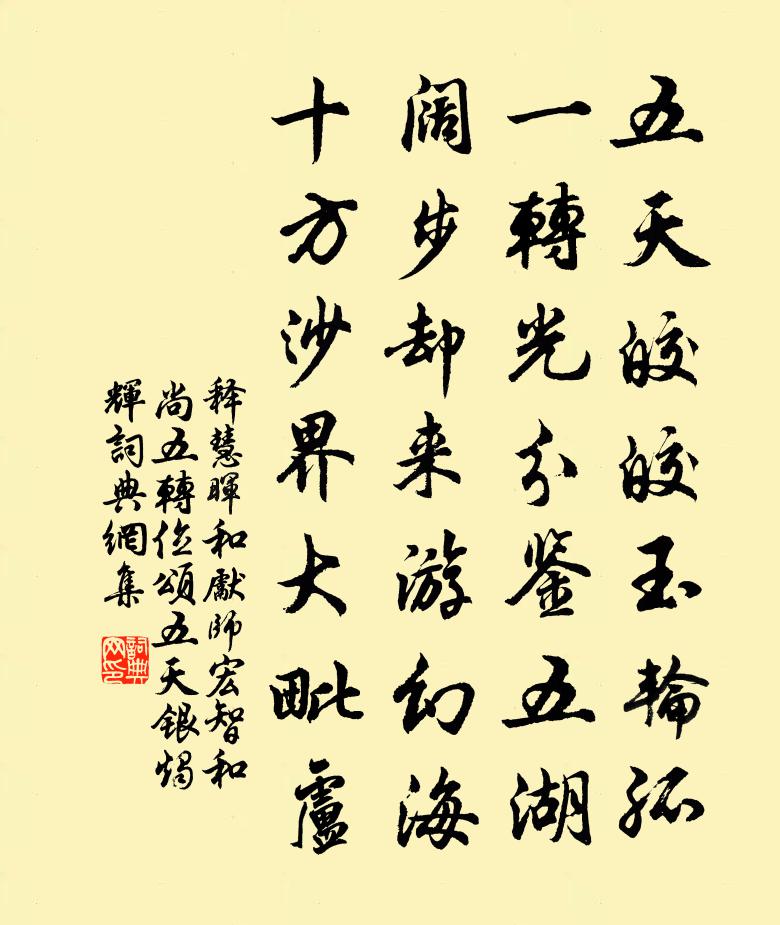 五天皎皎玉輪孤
一轉光分鉴五湖
阔步却来游幻海
十方沙界大毗盧
释慧暉和獻師宏智和
尚五轉位頌五天银燭
輝詞典網集
詞典网印